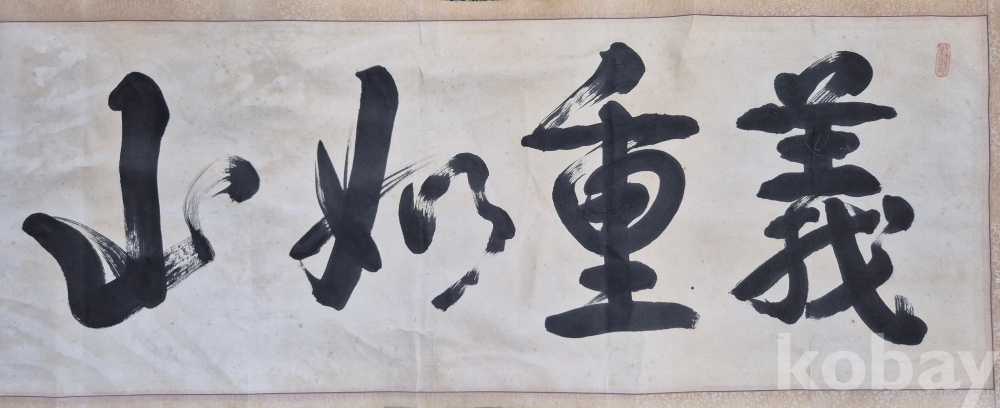 義重如山
kobay